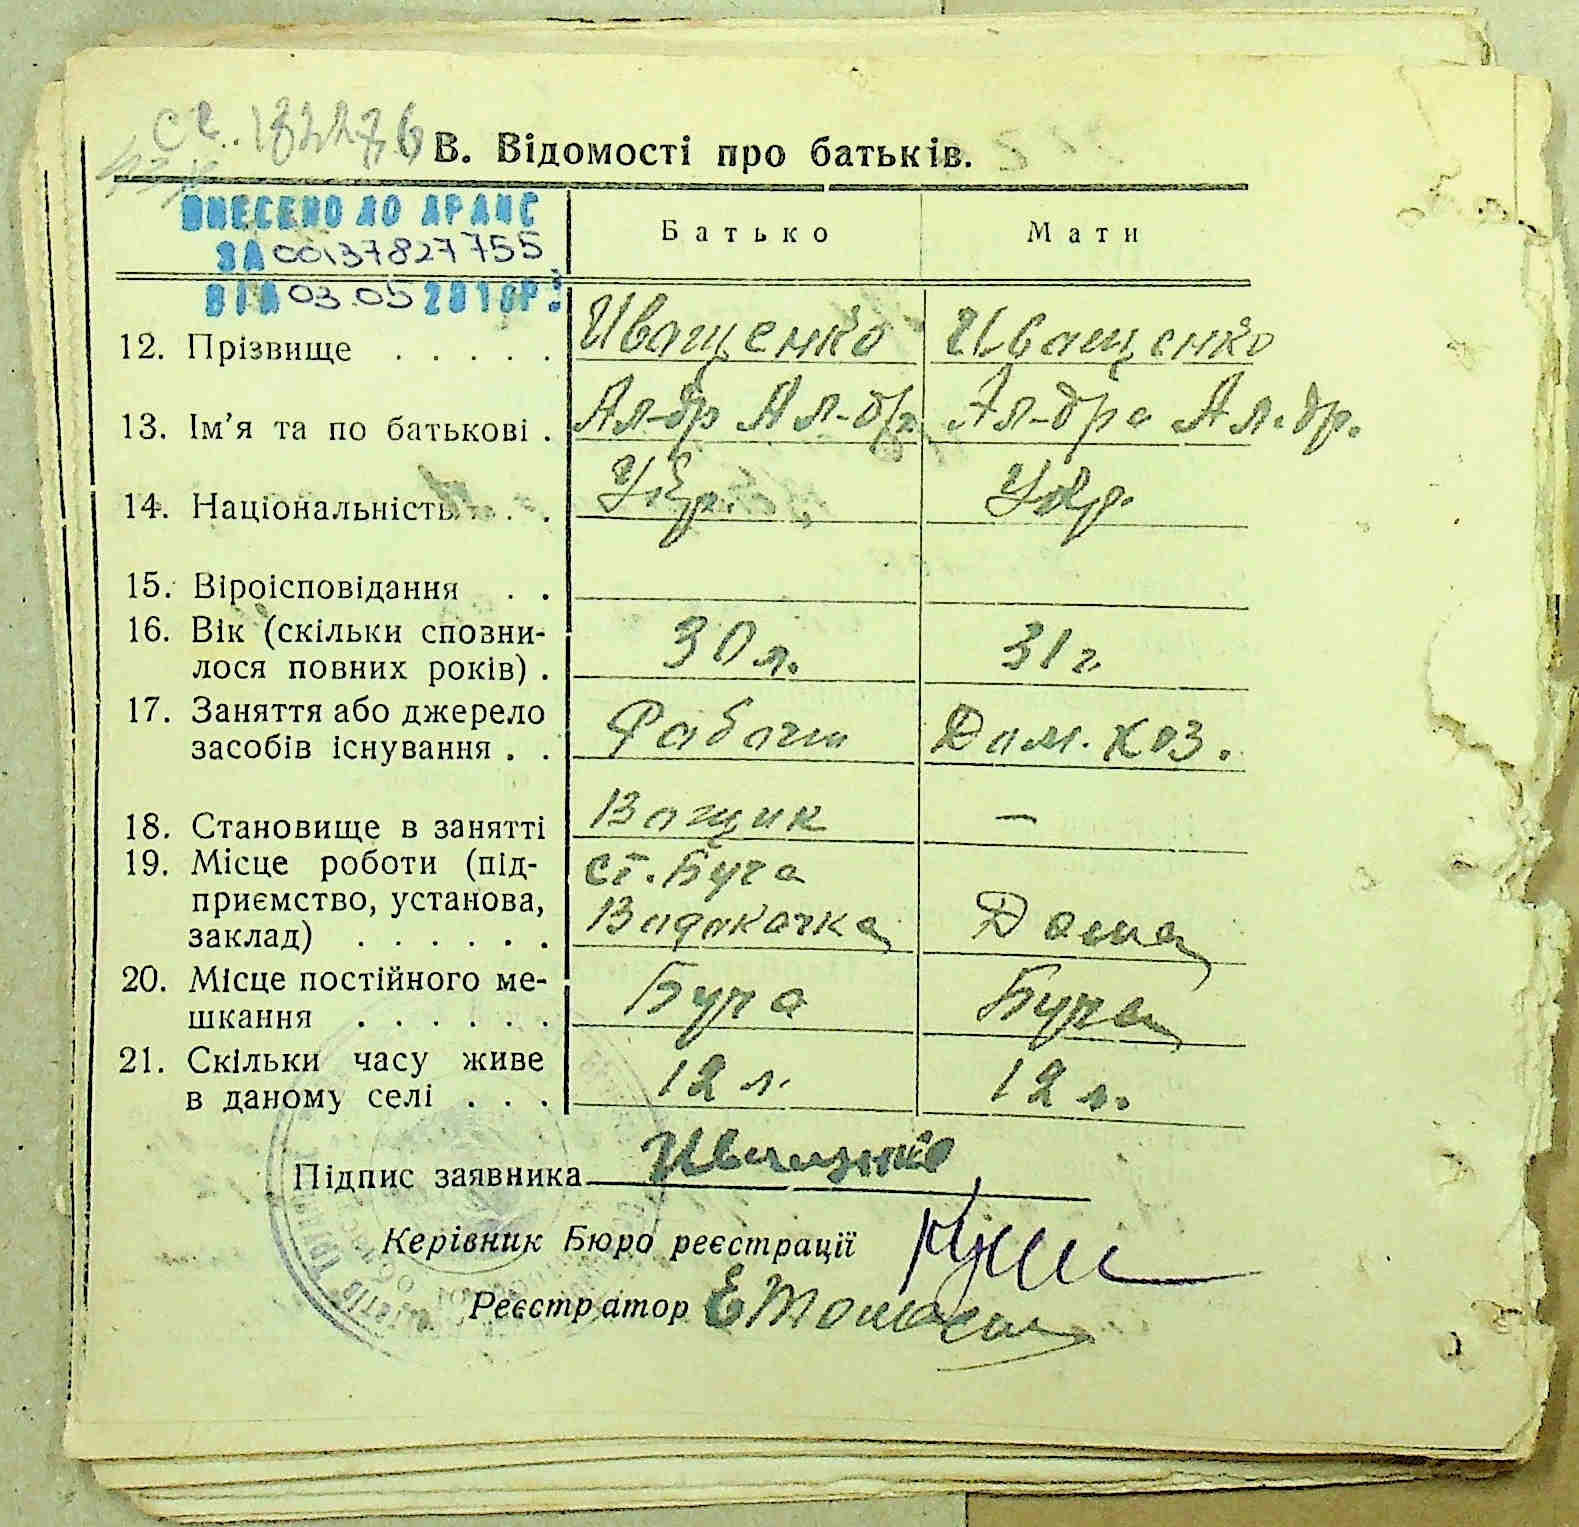 Сг. 182276
В. Відомості про батьків.
ВНЕСЕНО ДО ДРАЦС
ЗА 00137827755
ВІД 03.05 2018Р.
Батько Мати
12. Прізвище . . . . . Иващенко Иващенко
13. Ім'я та по батькові . Ал-др Ал-др Ал-дра Ал-др.
14. Національність . . . Укр. Укр.
15. Віроісповідання . .
16. Вік (скільки спозни-
лося повних років) . 30 л. 31 г.
17. Заняття або джерело
засобів існування . . Рабочи Дом. хоз.
18. Становище в занятті Вагщик —
19. Місце роботи (під- ст. Буча
приємство, установа, Водокачка Дома
заклад) . . . . . .
20. Місце постійного ме- Буча Буча
шкання . . . . . .
21. Скільки часу живе
в даному селі . . . 12 л. 12 л.
Підпис заявника Иващенко
Керівник Бюро реєстрації
Реєстратор